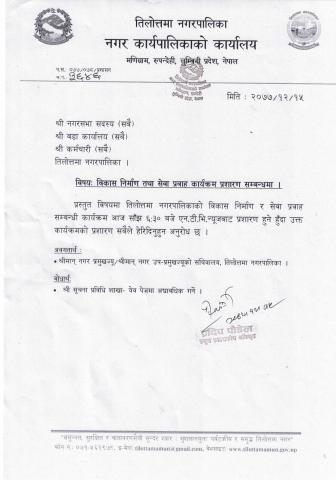 तिलोत्तमा नगरपालिका
नगर कार्यपालिकाको कार्यालय
मणिग्राम, रुपन्देही, लुम्बिनी प्रदेश, नेपाल
प.सं. ०७७/०७८/
च.नं.
मिति : २०७७/१२/१५
श्री नगरसभा सदस्य (सबै)
श्री वडा कार्यालय (सबै)
श्री कर्मचारी (सबै)
तिलोत्तमा नगरपालिका ।
विषयः विकास निर्माण तथा सेवा प्रवाह कार्यक्रम प्रशारण सम्बन्धमा ।
प्रस्तुत विषयमा तिलोत्तमा नगरपालिकाको विकास निर्माण र सेवा प्रवाह
सम्बन्धी कार्यक्रम आज साँझ ६:३० बजे एन.टी.भि.न्यूजबाट प्रशारण हुने हुँदा उक्त
कार्यक्रमको प्रशारण सबैले हेरिदिनुहुन अनुरोध छ ।
अवगतार्थ :
श्रीमान् नगर प्रमुखज्यू/श्रीमान् नगर उप-प्रमुखज्यूको सचिवालय, तिलोत्तमा नगरपालिका ।
बोधार्थ:
श्री सूचना प्रविधि शाखा- वेव पेजमा अद्यावधिक गर्ने ।
२०७७।१२।१५
प्रदिप पौडेल
प्रमुख प्रशासकीय अधिकृत
फोन नं.: ०७१-५६१९७१, इ-मेलः tilottamamun@gmail.com, वेभसाइटः www.tilottamamun.gov.np